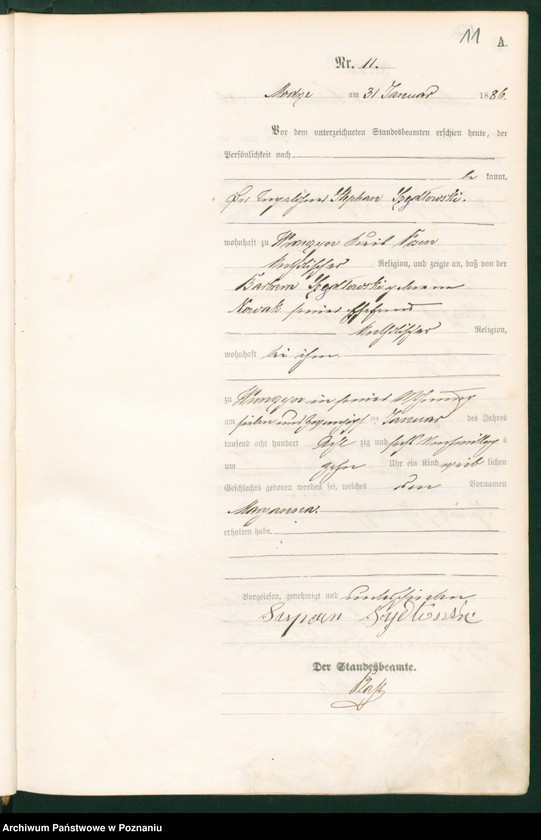 11
A.
Nr. 11.
am 31 Januar 1886.
Vor dem unterzeichneten Standesbeamten erschien heute, der
Persönlichkeit nach
be kannt,
Der Stephan
wohnhaft zu Kreis Posen
katholischer Religion, und zeigte an, daß von der
Barbara geborene
Nowak seiner Ehefrau
katholischer Religion,
wohnhaft bei ihm
zu in seiner Wohnung
am sieben und zwanzigsten Januar des Jahres
tausend acht hundert acht zig und sechs Vormittags
um zehn Uhr ein Kind weib lichen
Geschlechts geboren worden sei, welches den Vornamen
Maryanna
erhalten habe.
Vorgelesen, genehmigt und unterschrieben
Der Standesbeamte.
Archiwum Państwowe w Poznaniu